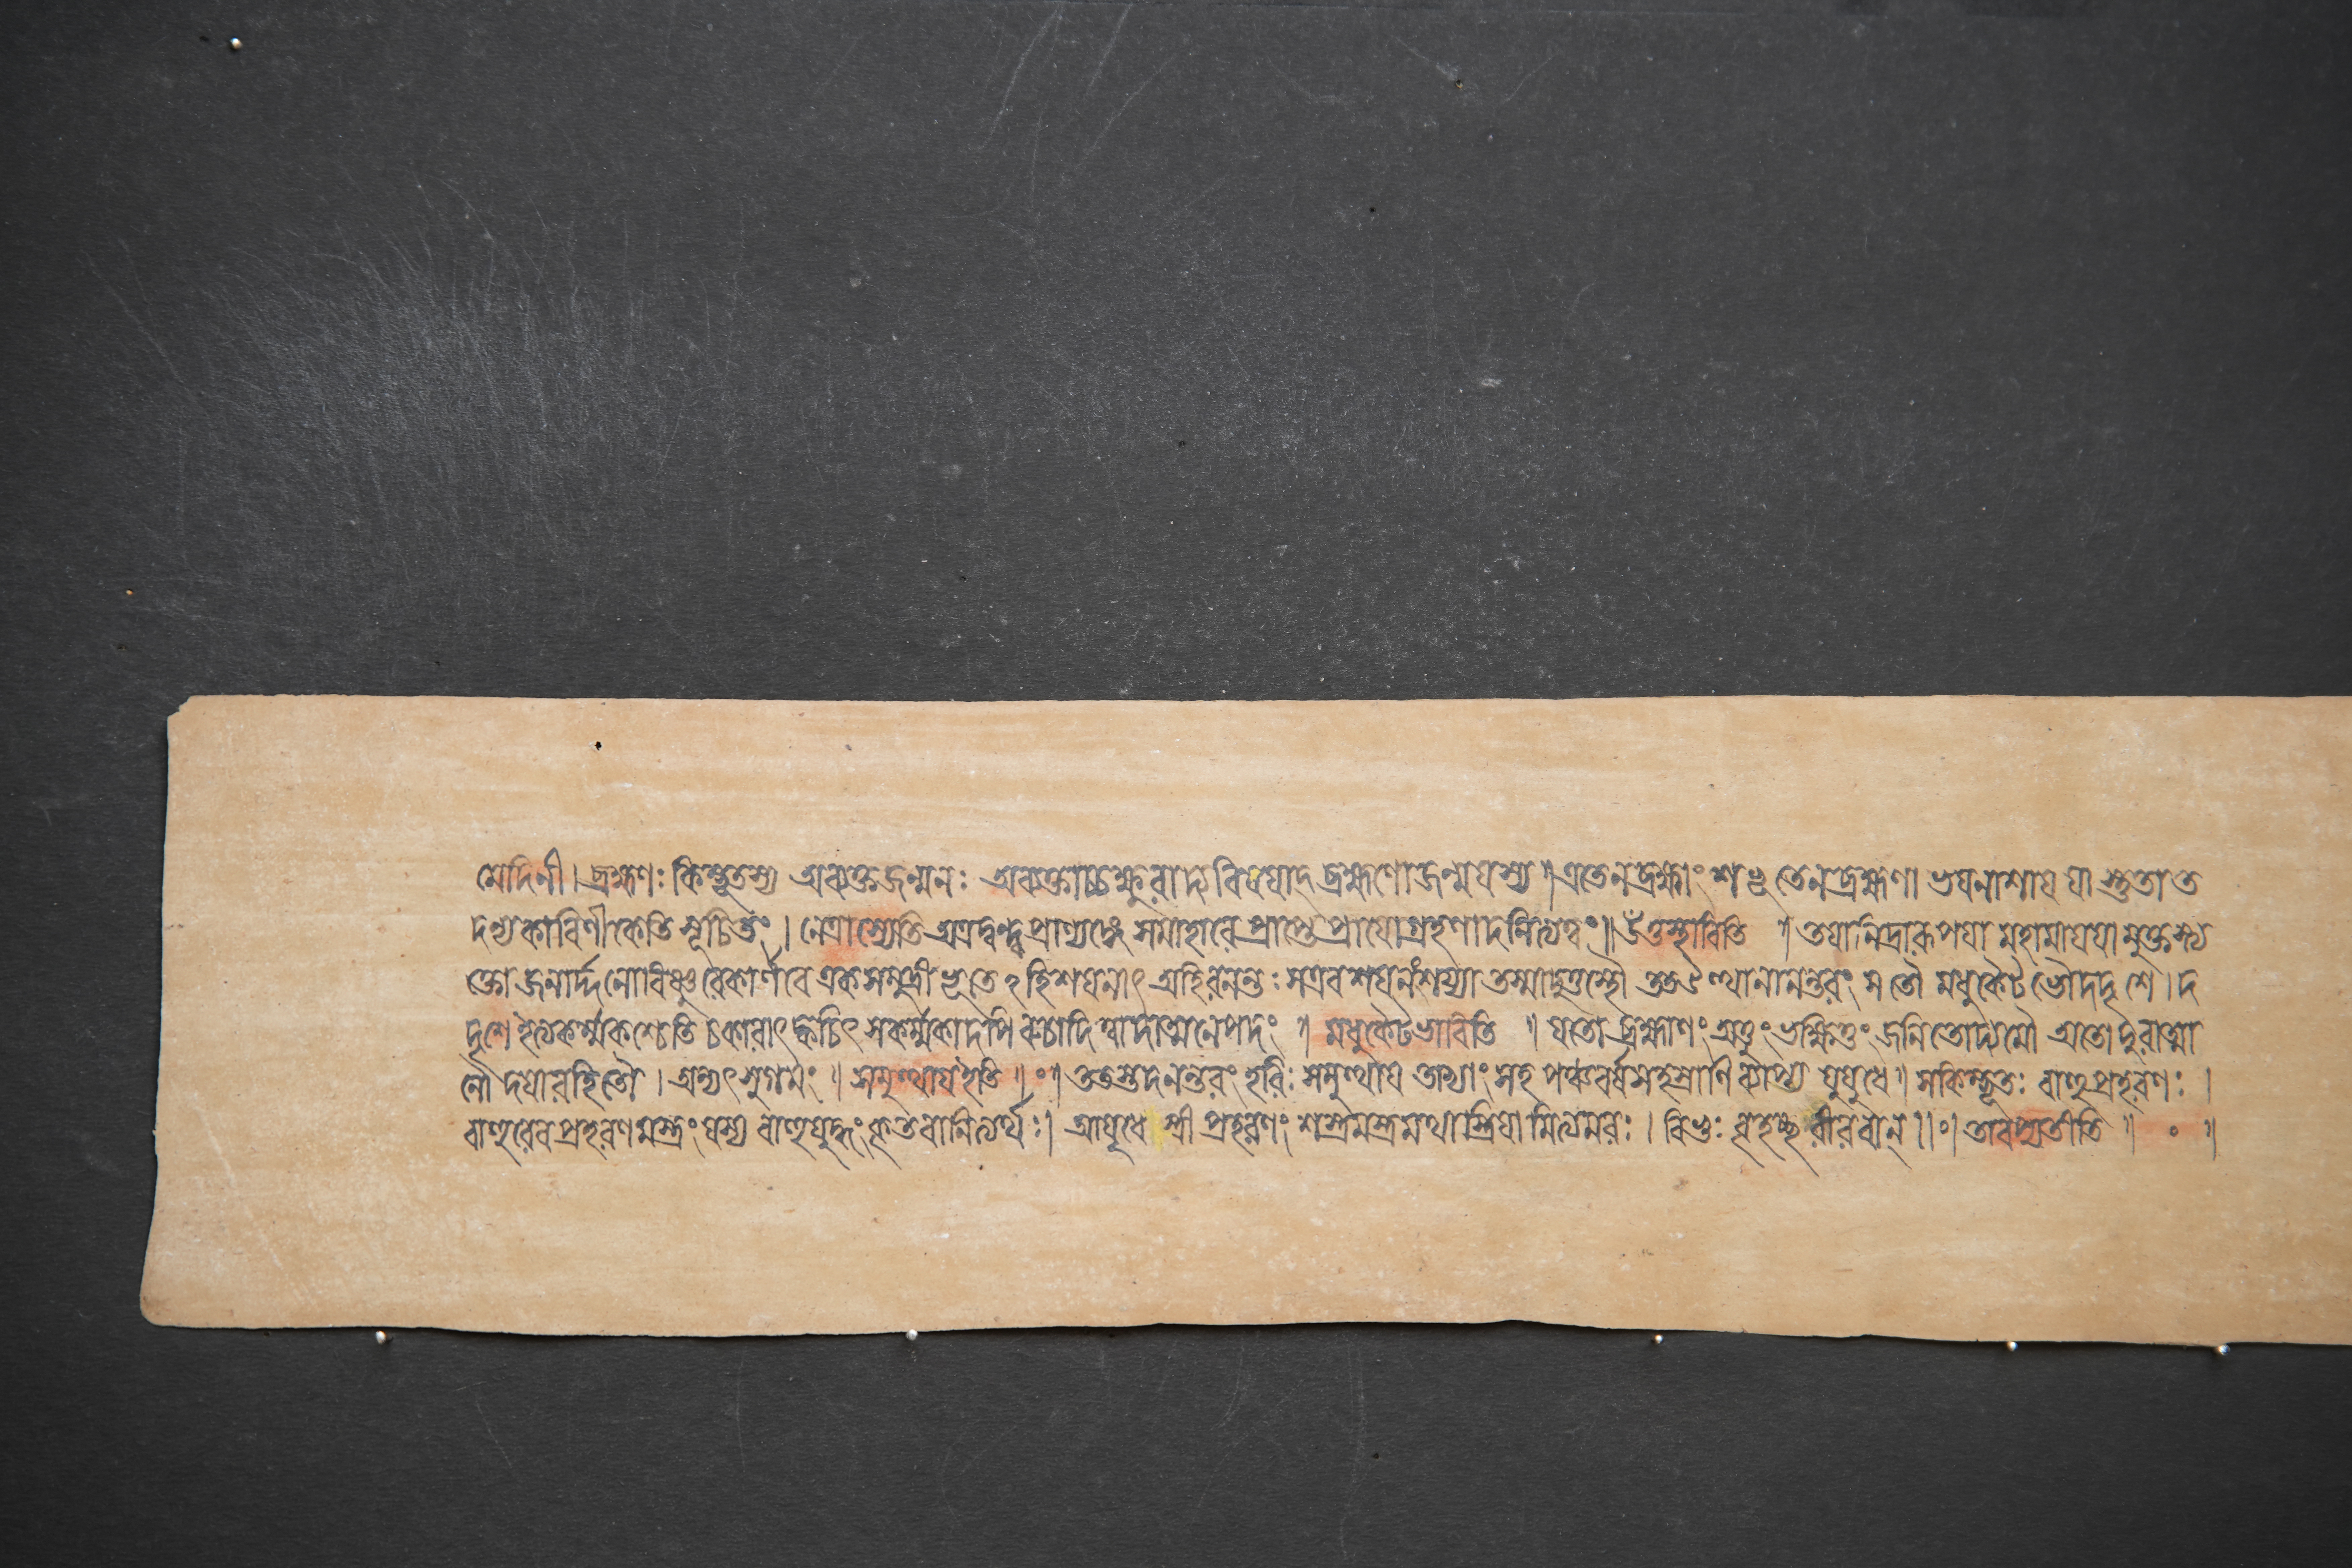 মেদিনী। ব্রহ্মণঃ কিম্ভূতস্য অব্যক্তজন্মনঃ অব্যক্তাচ্চক্ষুরাদ্যবিষয়াদ্ ব্রহ্মণোজন্মযস্য॥ এতেনব্রহ্মাং তেনব্রহ্মণা ভয়নাশায় যা স্তুতা ত
সূচিতং। নেত্রাস্যেতি অত্রদ্বন্দ্বপ্রাণ্যঙ্গে সমাহারে প্রাপ্তে প্রাযোগ্রহণাদনিত্যত্বং॥ উঁত্তস্থাবিতি ॥ তয়ানিদ্রারূপয়া মহামায়য়ামুক্তস্ত্য
ক্তো জনার্দ্দনোবিষ্ণুরেকার্ণবে একসমুদ্রীভূতে ঽহিশয়নাৎ অহিরনন্তঃ সএবশয়নংশয্যা তস্মাদুত্তস্থৌ ততঽউত্থানানন্তরং স তৌ মধুকৈটভৌদদৃশে। দ
দৃশে ইত্যকর্ম্মকশ্চেতি চকারাৎ ক্বচিৎ সকর্ম্মকাদপি রুচাদিত্বাদাত্মনেপদং ॥ মধুকৈটভাবিতি ॥ যতো ব্রহ্মাণং অত্তুং ভক্ষিতুং জনিতোদ্যমৌ অতো দুরাত্মা
নৌ দয়ারহিতৌ। অন্যৎ সুগমং ॥ সমুত্থায়ইতি ॥ঃ॥ ততস্তদনন্তরং হরিঃ সমুত্থায় তাভ্যাং সহ পঞ্চবর্ষসহস্রাণি ব্যাপ্য যুযুধে॥ সকিম্ভূতঃ বাহুপ্রহরণঃ।
বাহুরেব প্রহরণমস্ত্রং যস্য বাহুযুদ্ধং কৃতবানিত্যর্থঃ। আয়ুধে স্ত্রী প্রহরণং শস্ত্রমস্ত্রমথাস্ত্রিয়ামিত্যমরঃ। বিভুঃ বীরবান্॥ঃ॥ তাবপ্যতীতি ॥ ॰ ॥